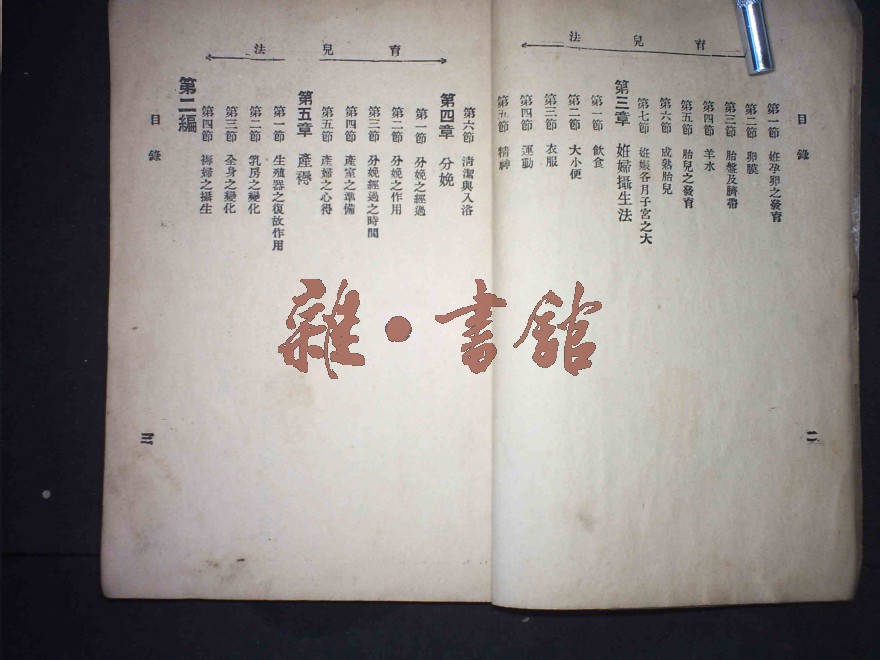 育兒法
目錄
第一節 妊孕卵之發育
第二節 卵膜
第三節 胎盤及臍帶
第四節 羊水
第五節 胎兒之發育
第六節 成熟胎兒
第七節 妊娠各月子宮之大
第三章 妊婦攝生法
第一節 飲食
第二節 大小便
第三節 衣服
第四節 運動
第五節 精神
二
育兒法
第六節 清潔與入浴
第四章 分娩
第一節 分娩之經過
第二節 分娩之作用
第三節 分娩經過之時間
第四節 產室之準備
第五節 產婦之心得
第五章 產褥
第一節 生殖器之復故作用
第二節 乳房之變化
第三節 全身之變化
第四節 褥婦之攝生
第二編
目錄
三
雜·書館